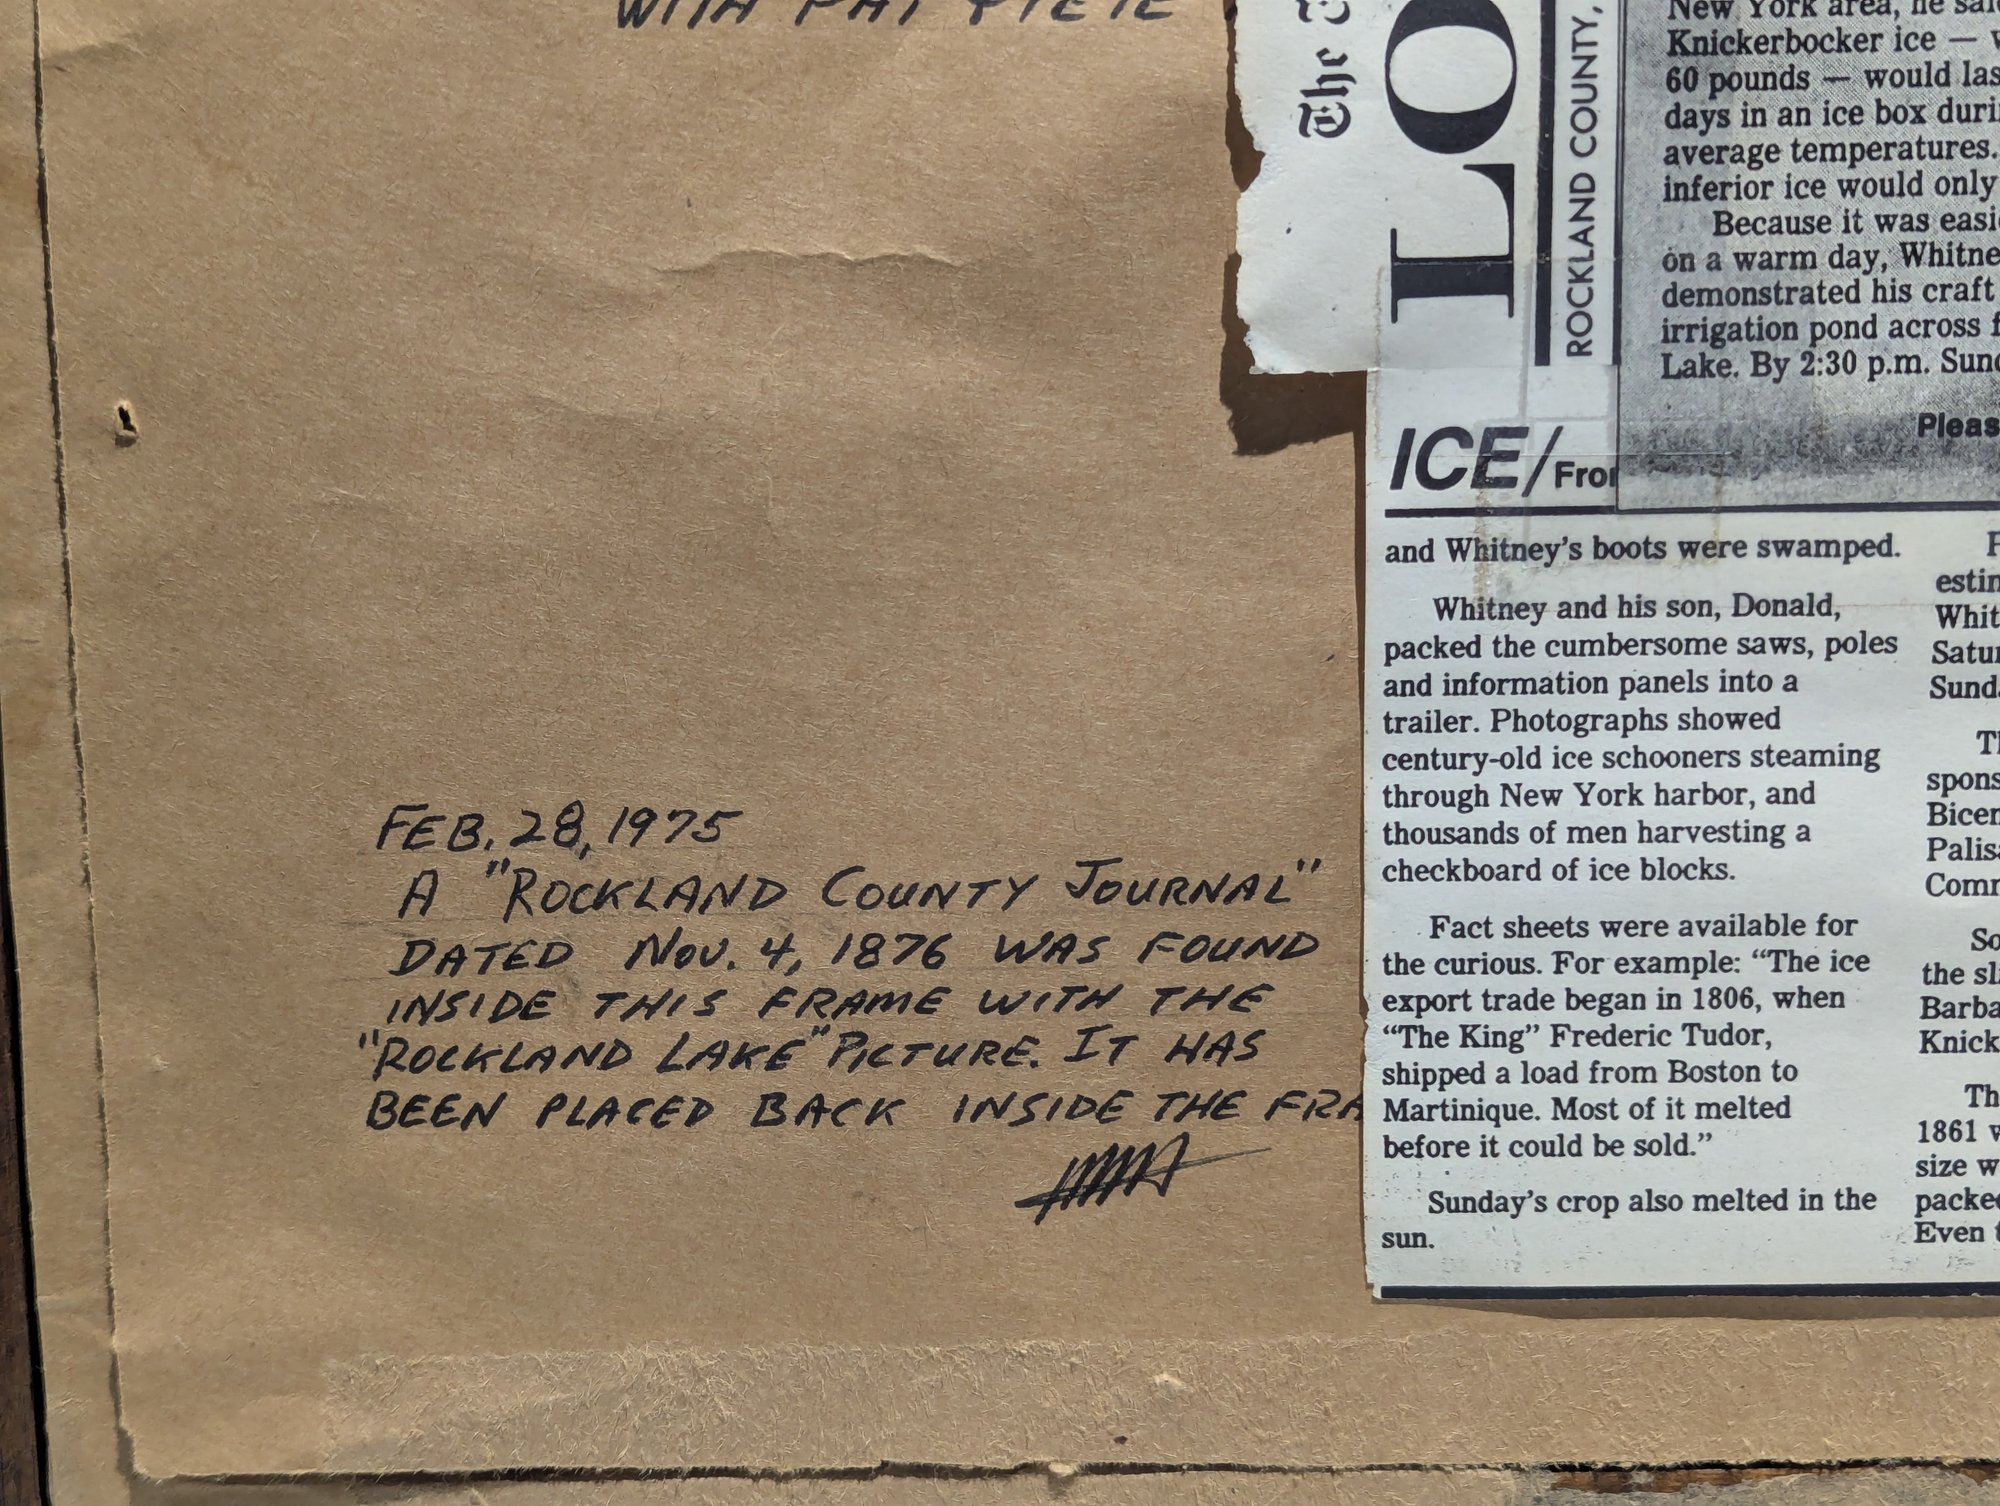 WITH
FEB. 28, 1975
A "ROCKLAND COUNTY JOURNAL"
DATED NOV. 4, 1876 WAS FOUND
INSIDE THIS FRAME WITH THE
"ROCKLAND LAKE" PICTURE. IT HAS
BEEN PLACED BACK INSIDE THE FRA
The
LO
ROCKLAND COUNTY,
New York area, he said
Knickerbocker ice —
60 pounds — would las
days in an ice box duri
average temperatures.
inferior ice would only
Because it was easi
on a warm day, Whitne
demonstrated his craft
irrigation pond across f
Lake. By 2:30 p.m. Sund
Pleas
ICE/From
and Whitney's boots were swamped.
Whitney and his son, Donald,
packed the cumbersome saws, poles
and information panels into a
trailer. Photographs showed
century-old ice schooners steaming
through New York harbor, and
thousands of men harvesting a
checkboard of ice blocks.
Fact sheets were available for
the curious. For example: “The ice
export trade began in 1806, when
“The King” Frederic Tudor,
shipped a load from Boston to
Martinique. Most of it melted
before it could be sold.”
Sunday's crop also melted in the
sun.
F
estin
Whit
Satur
Sund
Th
spons
Bicen
Palisa
Comm
So
the sl
Barba
Knick
Th
1861 w
size w
packed
Even t